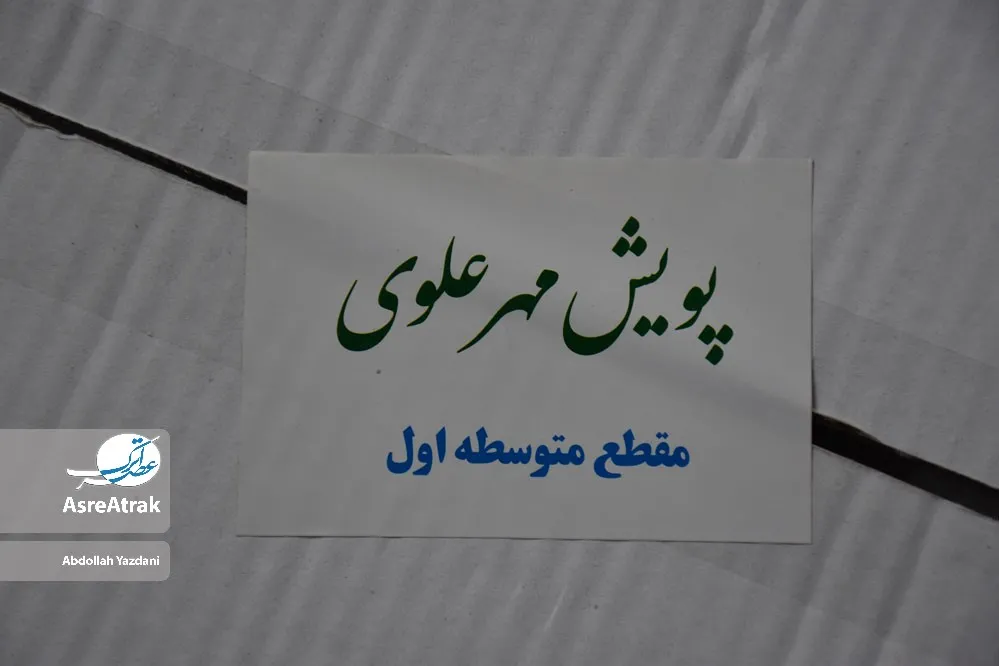 پویش مهر علوی
مقطع متوسطه اول
عصر اترک
AsreAtrak
Abdollah Yazdani